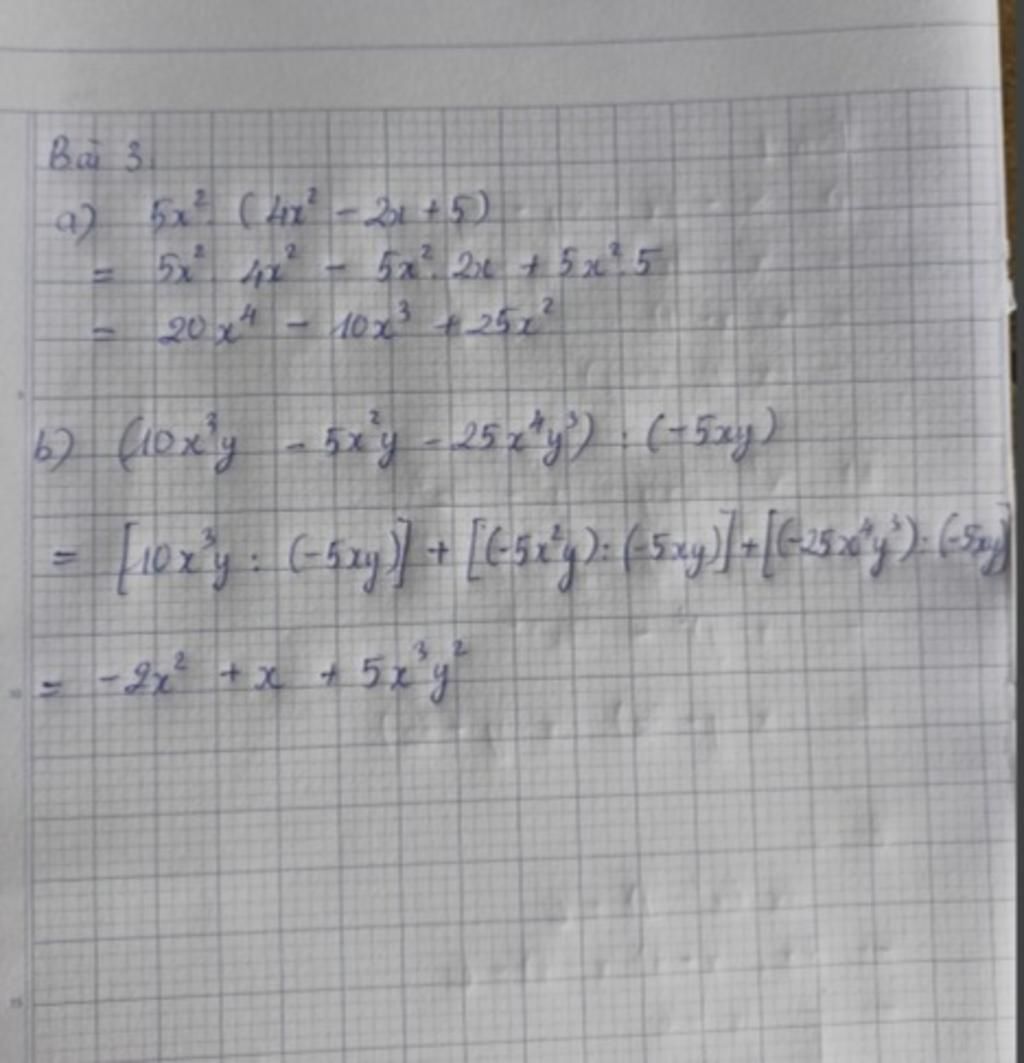 Bài 3.
a) 5x². (4x² - 2x + 5)
= 5x². 4x² - 5x². 2x + 5x². 5
= 20x⁴ - 10x³ + 25x²
b) (10x³y - 5x²y - 25x⁴y³) : (-5xy)
= [10x³y : (-5xy)] + [(-5x²y) : (-5xy)] + [(-25x⁴y³) : (-5xy)]
= -2x² + x + 5x³y²